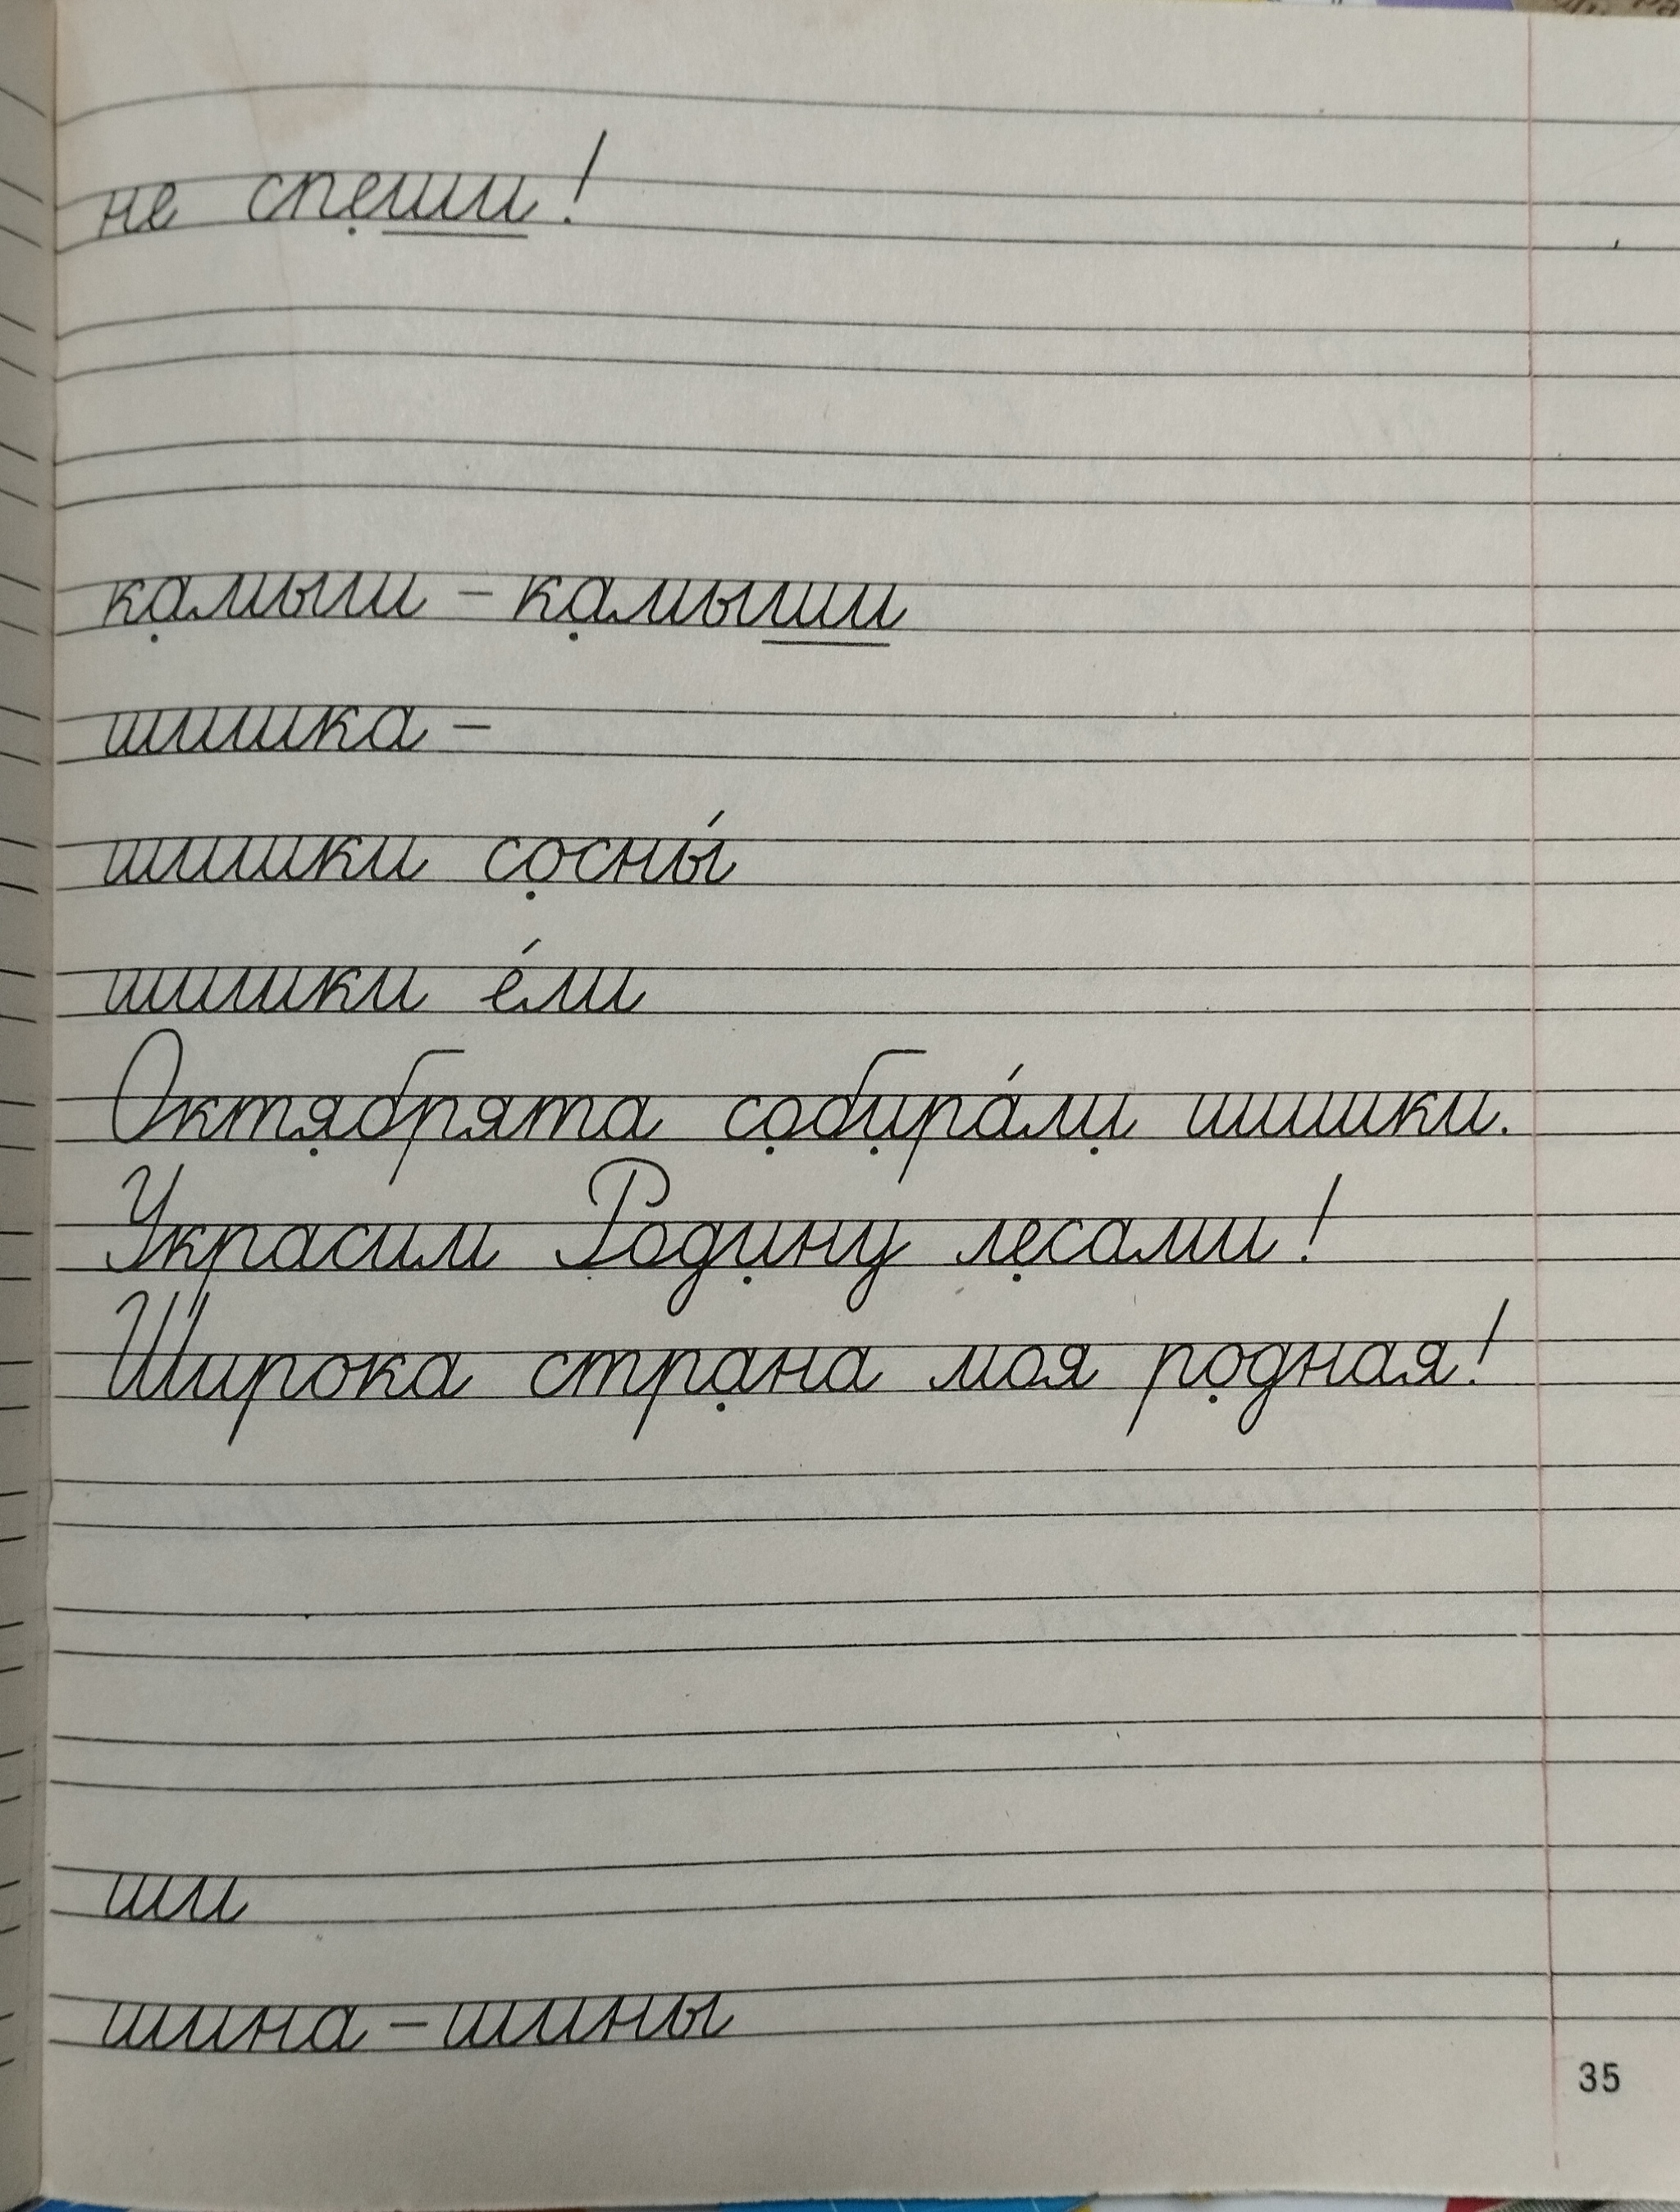 не спеши!
камыш – камыши
шишка –
шишки сосны́
шишки е́ли
Октябрята собира́ли шишки.
Украсим Родину лесами!
Широка страна моя родная!
ши
шина – шины
35